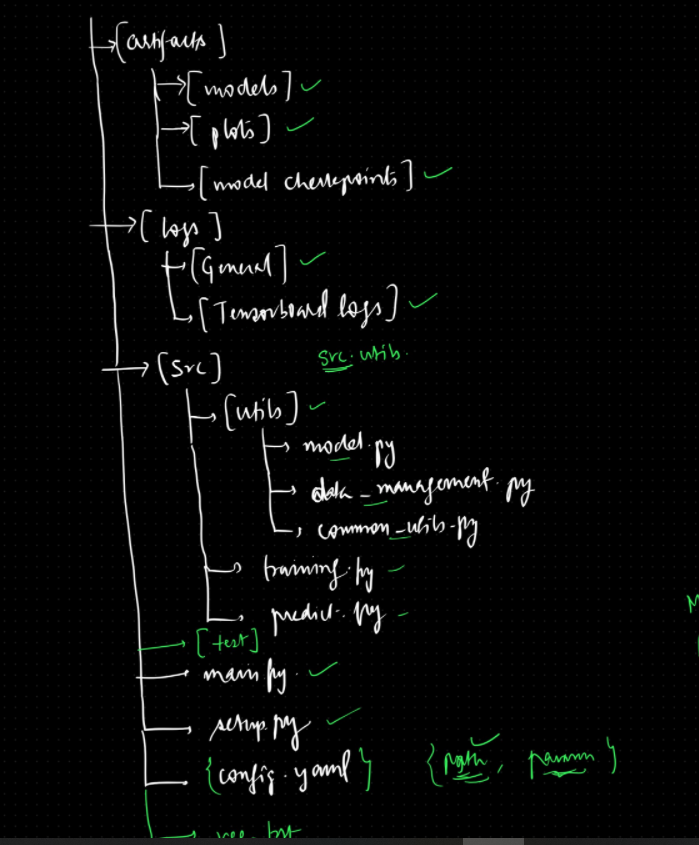 [artifacts]
[models]
[plots]
[model checkpoints]
[logs]
[General]
[Tensorboard logs]
src.utils.
[Src]
[utils]
model.py
data_management.py
common_utils.py
training.py
predict.py
[test]
main.py
setup.py
{config.yaml} {path, param}